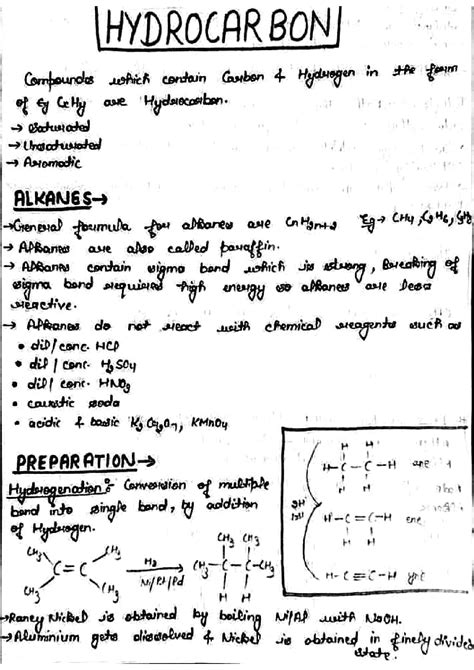 HYDROCARBON
Compounds which contain Carbon & Hydrogen in the form
of Eg CxHy are Hydrocarbon.
→ Saturated
→ Unsaturated
→ Aromatic
ALKANES→
→General formula for alkanes are CnH2n+2 Eg→ CH4, C2H6,
→ Alkanes are also called paraffin.
→ Alkanes contain sigma bond which is strong, Breaking of
sigma bond requires high energy so alkanes are less
reactive.
→ Alkanes do not react with chemical reagents such as
• dil/conc. HCl
• dil/conc. H2SO4
• dil/conc. HNO3
• caustic soda
• acidic & basic K2Cr2O7, KMnO4
PREPARATION→
Hydrogenation: Conversion of multiple
bond into single bond, by addition
of Hydrogen.
CH3 CH3 CH3 CH3
C=C H2 CH3-C-C-CH3
CH3 CH3 Ni/Pt/Pd H H
H H
H-C-C-H ane
H H
H-C=C-H ene
H H
H-C≡C-H yne
→Raney Nickel is obtained by boiling Ni/Al with NaOH.
→Aluminium gets dissolved & Nickel is obtained in finely divided
state.